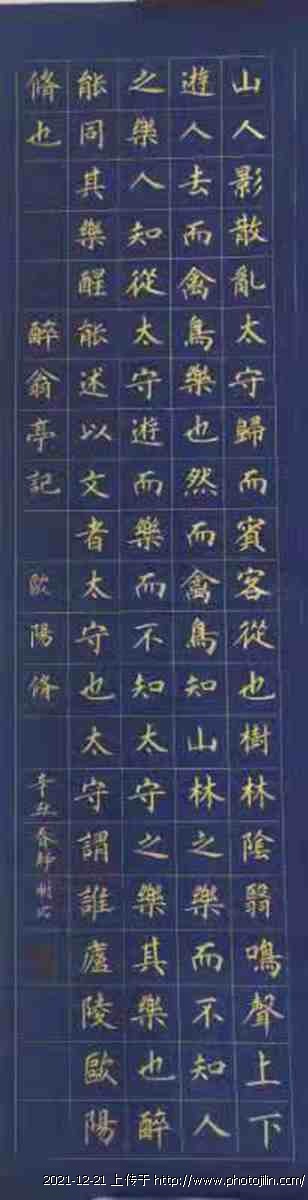 山人影散亂太守歸而賓客從也樹林陰翳鳴聲上下
遊人去而禽鳥樂也然而禽鳥知山林之樂而不知人
之樂人知從太守遊而樂而不知太守之樂其樂也醉
能同其樂醒能述以文者太守也太守謂誰廬陵歐陽
脩也 醉翁亭記 歐陽脩 辛丑春
2021-12-21 上传于 http://www.photojilin.com